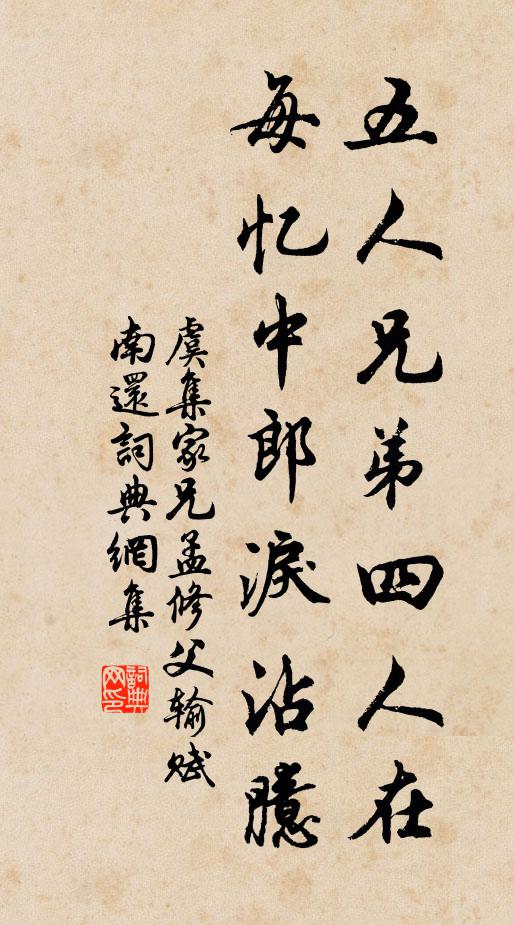 五人兄弟四人在
每忆中郎淚沾臆
虞集家兄孟修父输賦
南還詞典網集
詞典网印